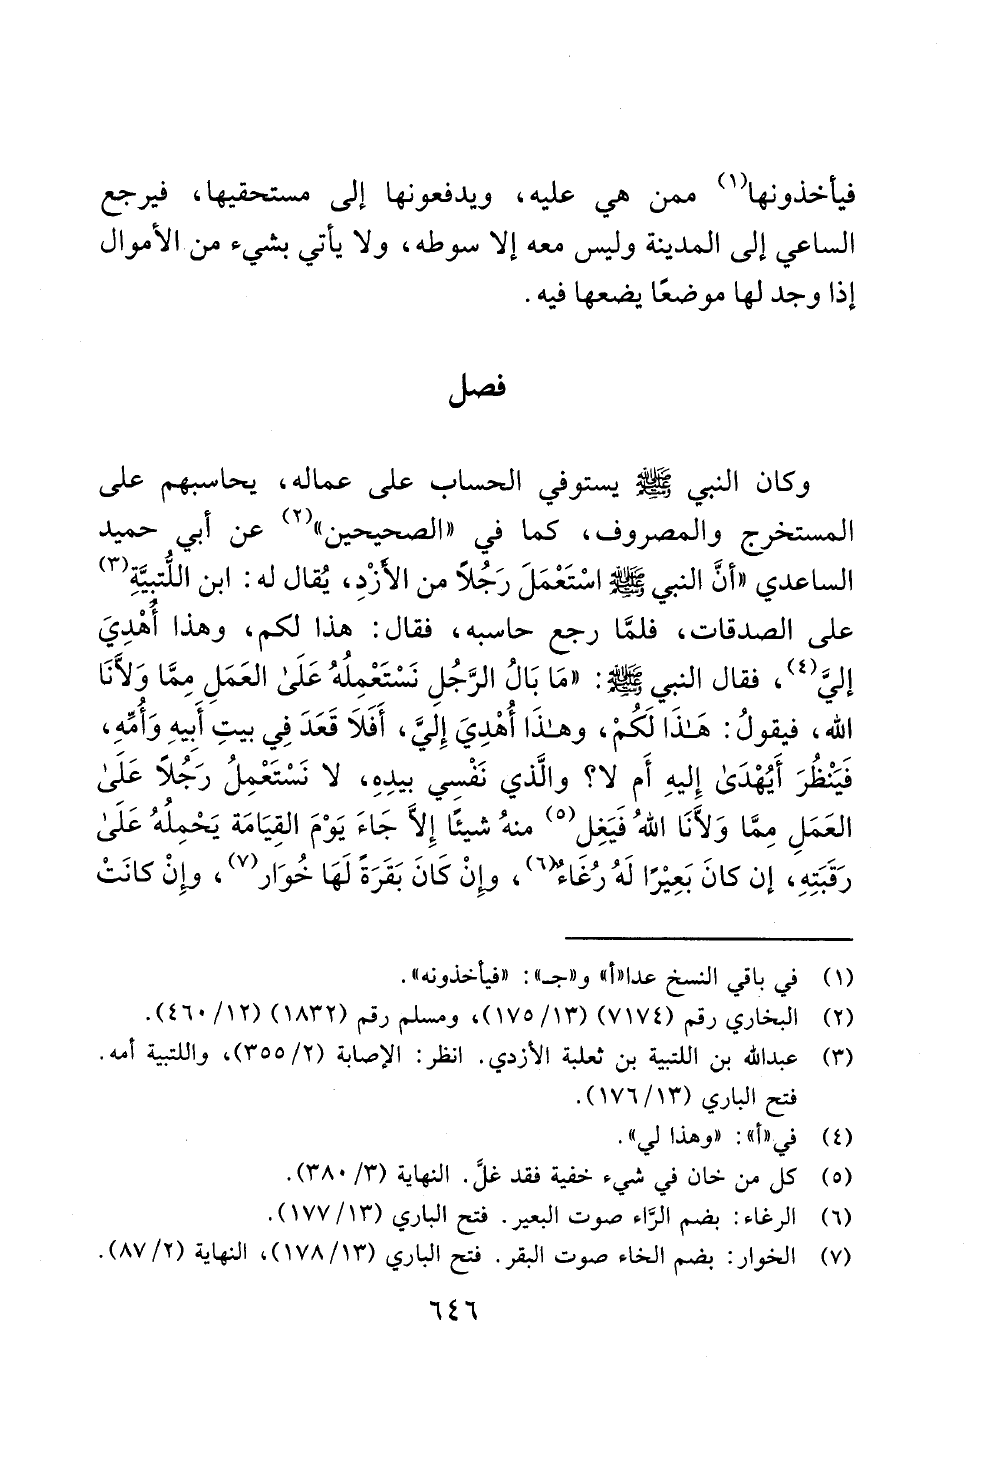 فيأخذونها(١) ممن هي عليه، ويدفعونها إلى مستحقيها، فيرجع
الساعي إلى المدينة وليس معه إلا سوطه، ولا يأتي بشيء من الأموال
إذا وجد لها موضعًا يضعها فيه.
فصل
وكان النبي ﷺ يستوفي الحساب على عماله، يحاسبهم على
المستخرج والمصروف، كما في «الصحيحين»(٢) عن أبي حميد
الساعدي «أنَّ النبي ﷺ اسْتَعْمَلَ رَجُلاً من الأَزْدِ، يُقال له: ابن اللُّتبِيَّةِ(٣)
على الصدقات، فلمَّا رجع حاسبه، فقال: هذا لكم، وهذا أُهْدِيَ
إليَّ(٤)، فقال النبي ﷺ: «مَا بَالُ الرَّجُلِ نَسْتَعْمِلُهُ عَلَىٰ العَمَلِ مِمَّا وَلأَنَا
الله، فيقولُ: هَـٰذَا لَكُمْ، وهـٰذَا أُهْدِيَ إِليَّ، أَفَلَا قَعَدَ فِي بيتِ أَبيهِ وَأُمِّهِ،
فَيَنْظُرَ أَيُهْدَىٰ إِليهِ أَم لا؟ والَّذي نَفْسِي بيدِهِ، لا نَسْتَعْمِلُ رَجُلاً عَلَىٰ
العَمَلِ مِمَّا وَلأَنَا اللهُ فَيَغِل(٥) منهُ شيئًا إِلاَّ جَاءَ يَوْمَ القِيَامَة يَحْمِلُهُ عَلَىٰ
رَقَبَتِهِ، إن كانَ بَعِيْرًا لَهُ رُغَاءٌ(٦)، وإِنْ كَانَ بَقَرَةً لَهَا خُوَار(٧)، وإِنْ كانَتْ
(١) في باقي النسخ عدا«أ» و«جـ»: «فيأخذونه».
(٢) البخاري رقم (٧١٧٤) (١٣/ ١٧٥)، ومسلم رقم (١٨٣٢) (١٢/ ٤٦٠).
(٣) عبدالله بن اللتبية بن ثعلبة الأزدي. انظر: الإصابة (٢/ ٣٥٥)، واللتبية أمه.
فتح الباري (١٣/ ١٧٦).
(٤) في«أ»: «وهذا لي».
(٥) كل من خان في شيء خفية فقد غلَّ. النهاية (٣/ ٣٨٠).
(٦) الرغاء: بضم الرَّاء صوت البعير. فتح الباري (١٣/ ١٧٧).
(٧) الخوار: بضم الخاء صوت البقر. فتح الباري (١٣/ ١٧٨)، النهاية (٢/ ٨٧).
٦٤٦